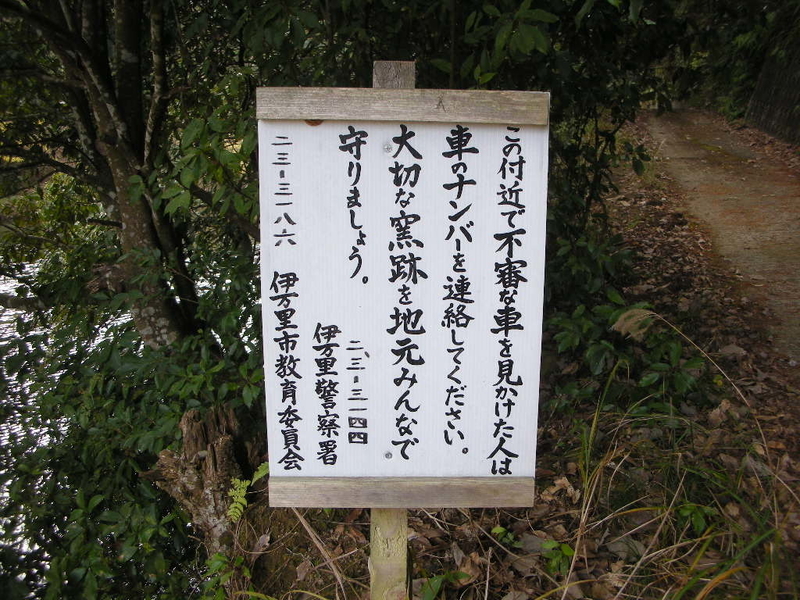 この付近で不審な車を見かけた人は
車のナンバーを連絡してください。
大切な窯跡を地元みんなで
守りましょう。
二、三-三一四四
伊万里警察署
二三-三一八六
伊万里市教育委員会